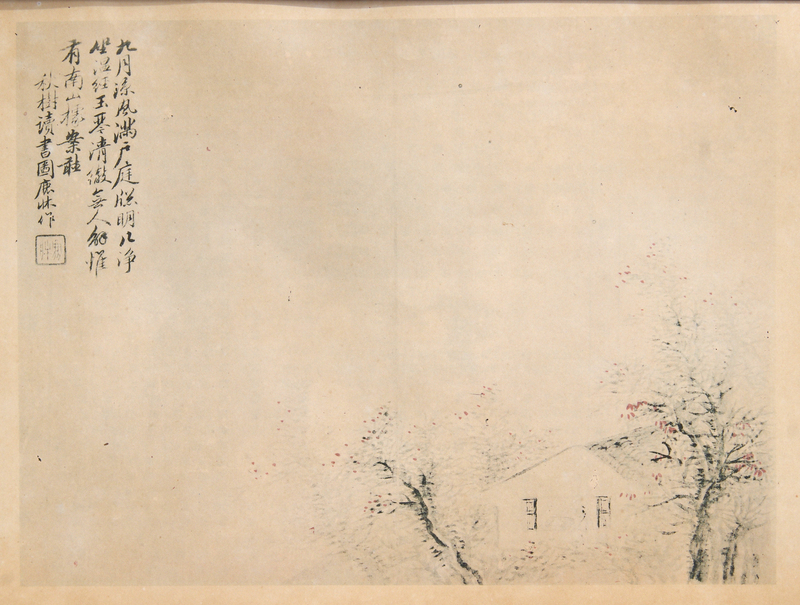 九月涼風滿戶庭牕明几淨
坐溫經玉琴清徹無人解惟
有南山據案聽
秋樹讀書圖鹿牀作